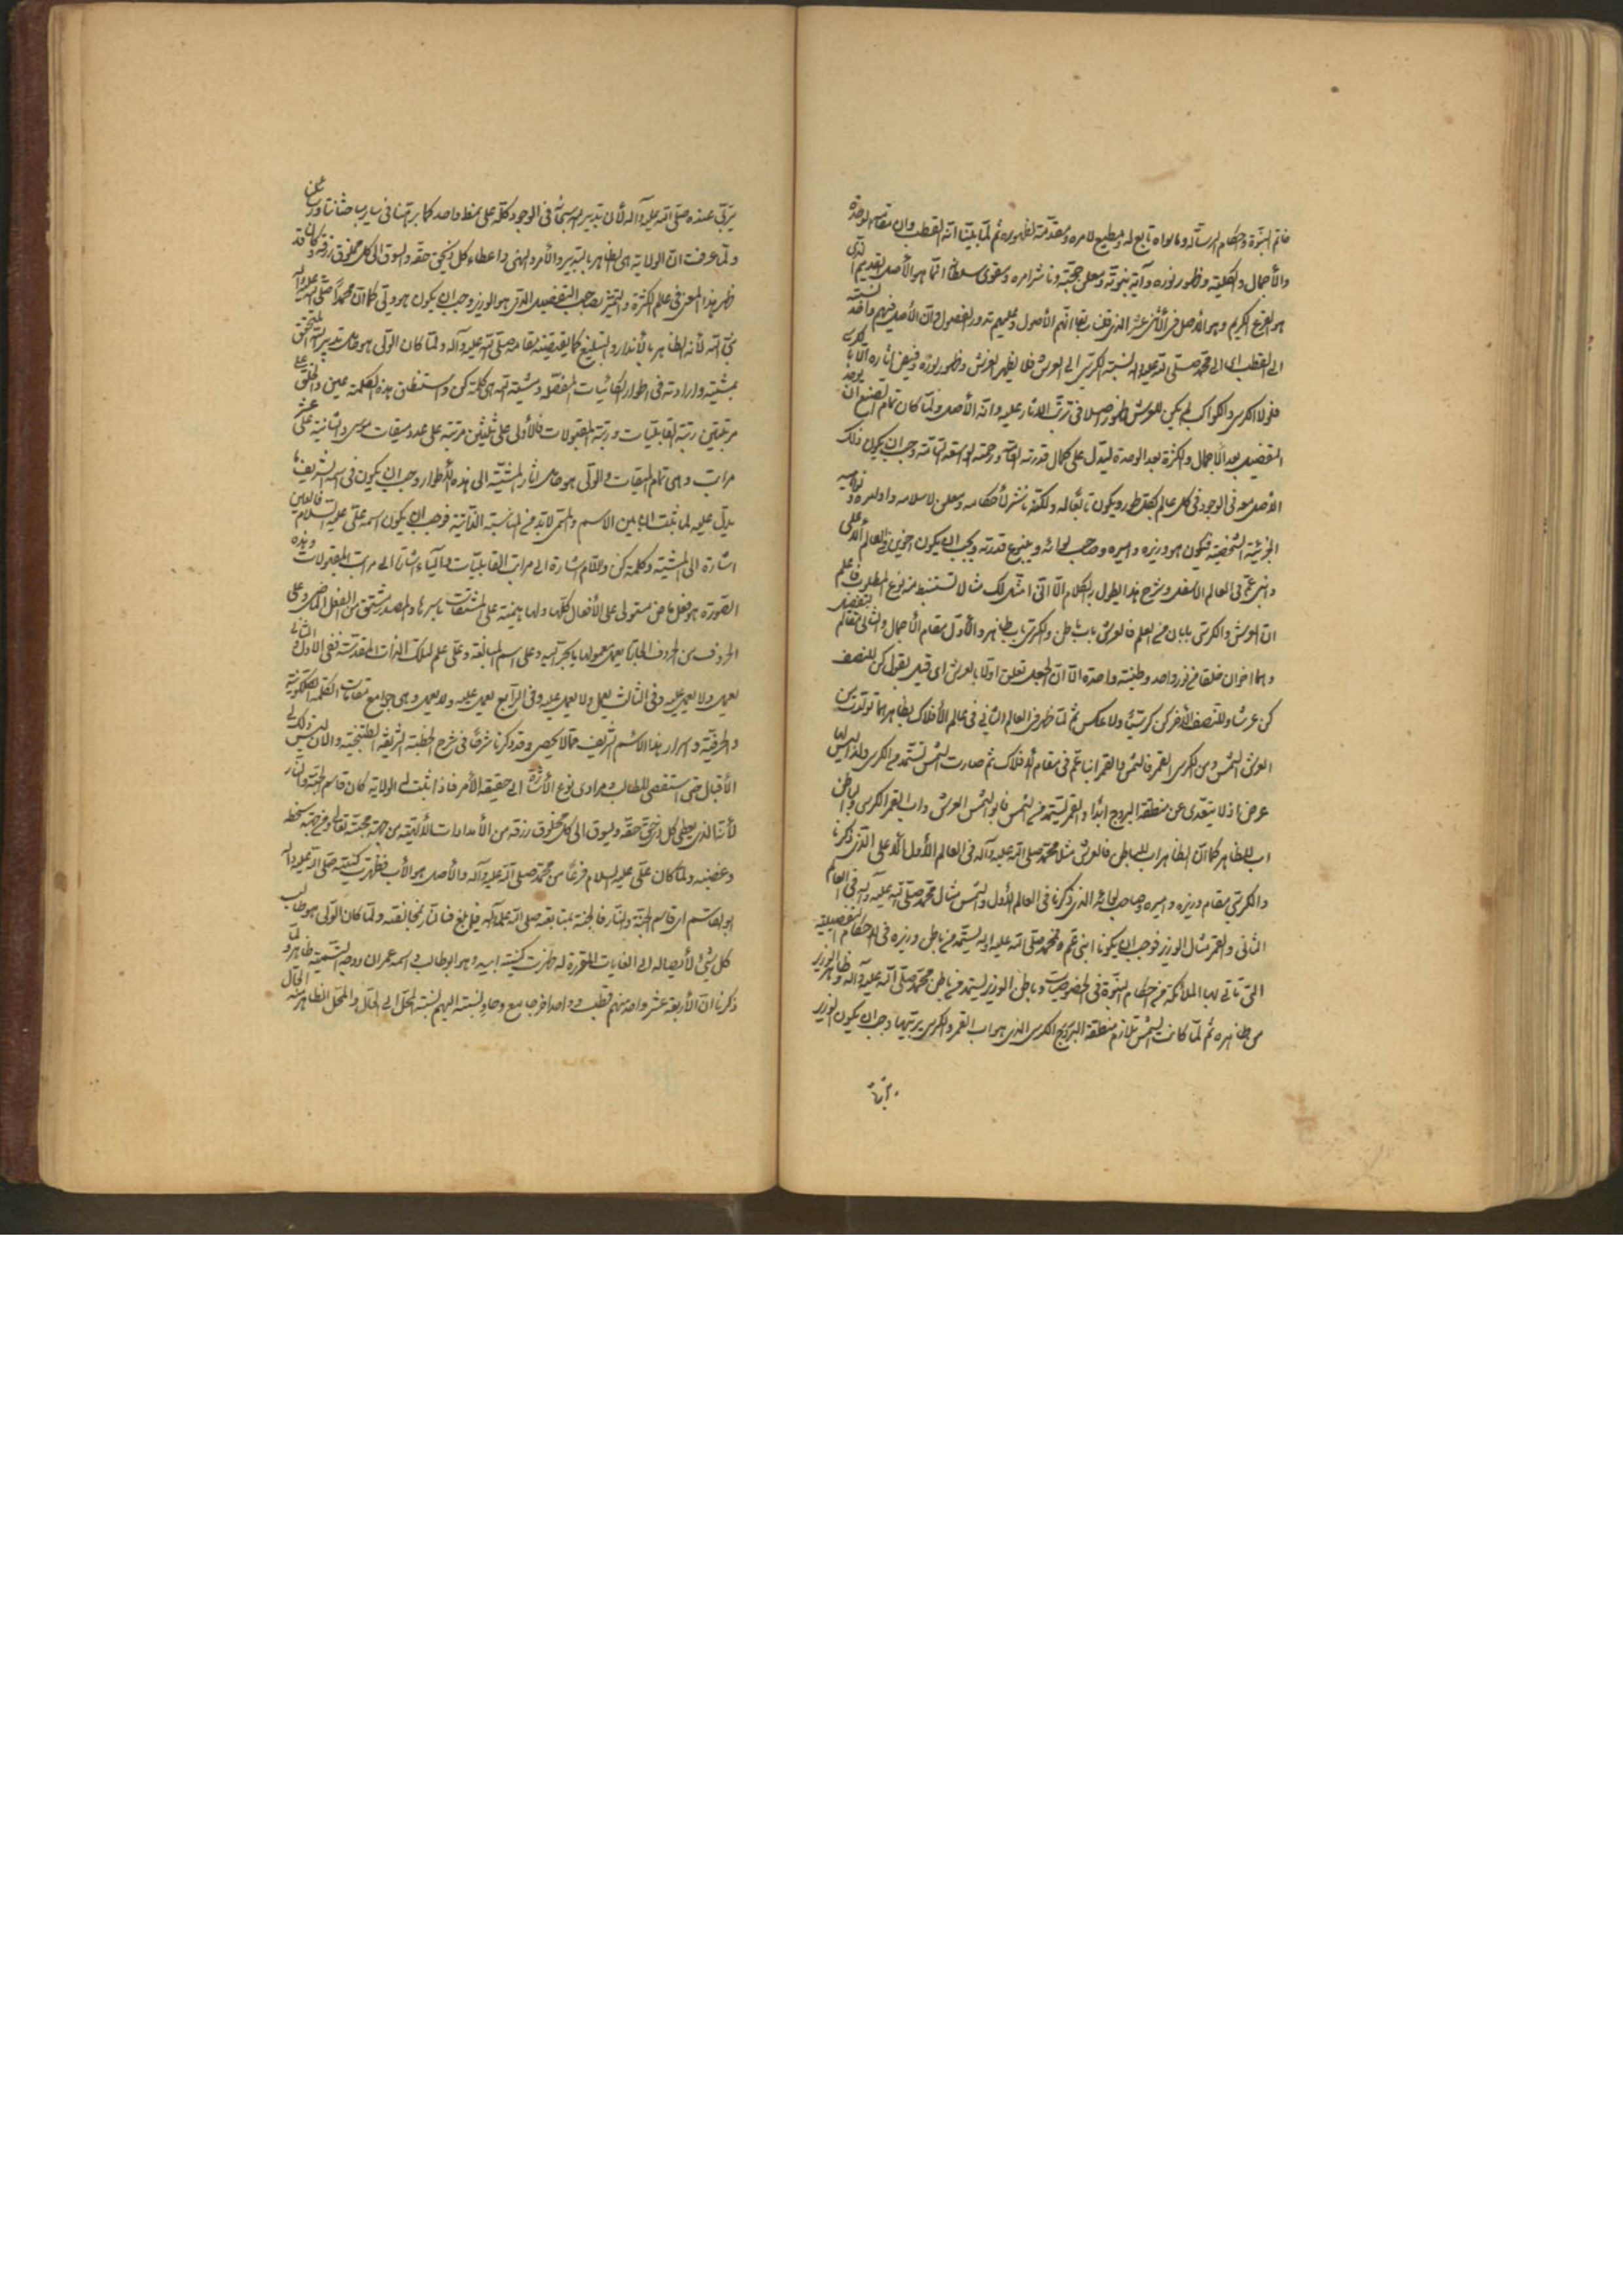 خاتم النبوة واحكام الرسالة وما سواه تابع له ومطيع لامره ومقدمة لظهوره ثم لما بيّنا انه القطب وان مقامه الوحدة
والأجمال والكلية وظهور نوره وآية نبوته ومعلن حجته وناشر امره ومقوى سلطانه انما هو الأصل القديم الذى
هو الفرع الكريم وهو الأصل فى الأثنى عشر الذين قلنا سابقا انهم الأصول وعليهم تدور الفصول وان الأصل فيهم واحد نسبته
الى القطب اى الى محمد صلى الله عليه وآله نسبة الكرسى الى العرش فلا يظهر العرش وظهور نوره وفيض اثاره الا بالكرسى
فلولا الكرسى والكواكب لم يكن للعرش ظهور اصلا فى ترتب الاثار عليه وانه الأصل ولما كان تمام الصنع ان يوجد
التفصيل بعد الأجمال والكثرة بعد الوحدة ليدل على كمال قدرته العامة ورحمته الواسعة التامة وجب ان يكون ذلك
الأصل معه فى الوجود فى كل عالم بكل طور ويكون تابعا له ولكنه ناشر لأحكامه ومعلن لاسلامه واوامره ونواهيه
الجزئية الشخصية فيكون هو وزيره واميره وصاحب لوائه وينبوع قدرته ويجب ان يكون اخوين فى العالم الأعلى
وابنى عم فى العالم الاسفل وشرح هذا يطول به الكلام الا انى امثل لك مثالا تستنبط منه نوع المطلوب فاعلم
ان العرش والكرسى بابان من العلم فالعرش باب باطن والكرسى باب ظاهر والأول مقام الأجمال والثانى مقام التفصيل
وهما اخوان خلقا من نور واحد وطينة واحدة الا ان الجعل تعلق اولا بالعرش اى قيل بقول كن للنصف
كن عرشا وللنصف الأخر كن كرسيا ولا عكس ثم لما ظهر فى العالم الثانى فى عالم الأفلاك بظاهرهما تولدت من
العرش الشمس ومن الكرسى القمر فالشمس والقمر ابنا عم فى مقام الأفلاك ثم صارت الشمس تستمد من الكرسى ولذا ليس لها
عرض اذ لا يتعدى عن منطقة البروج ابدا والقمر يستمد من الشمس فابو الشمس العرش واب القمر الكرسى والباطن
اب للظاهر كما ان الظاهر اب للباطن فالعرش مثل محمد صلى الله عليه وآله فى العالم الأول الأعلى الذى ذكرنا
والكرسى مقام وزيره واميره وصاحب لوائه الذى ذكرنا فى العالم الأول والشمس مثال محمد صلى الله عليه وآله فى العالم
الثانى والقمر مثال الوزير فوجب ان يكونا ابنى عم فمحمد صلى الله عليه وآله يستمد من باطن وزيره فى الاحكام التفصيلية
التى تأتى بها الملائكة من احكام النبوة فى الخصوصيات وباطن الوزير يستمد من باطن محمد صلى الله عليه وآله وظاهر الوزير
من ظاهره ثم لما كانت الشمس تلازم منطقة البروج الكرسى الذى هو اب القمر والكرسى يربيها وجب ان يكون الوزير
يربى عنده صلى الله عليه وآله لأن تدبير الله سبحانه فى الوجود كله على نمط واحد كما برهنا فى ساير مباحثاتنا ورسائلنا
ولما عرفت ان الولاية هى الظاهر بالتدبير والأمر والنهى واعطاء كل ذى حق حقه والسوق الى كل مخلوق رزقه وكان قد
ظهر هذا المعنى فى علم الكثرة والتميز بصاحب التفصيل الذى هو الوزير وجب ان يكون هو ولى كما ان محمدا صلى الله عليه وآله
نبى الله لأنه الظاهر بالأنذار والتبليغ كما يقتضيه مقامه صلى الله عليه وآله ولما كان الولى هو حامل تدبير الله المتحقق
بمشيته وارادته فى اطوار الكائنات المفصلة ومشية الله هى كلمة كن واستنطق هذه الكلمة عين والخلق على
مرتبتين رتبة القابليات ورتبة المقبولات فالأولى على ثلثين مرتبة على عدد ميقات موسى والثانية على عشر
مراتب وهى تمام الميقات والولى هو حامل اثار المشية الى هذه الأطوار وجب ان يكون فى اسمه الشريف ما
يدل عليه لما ثبت ان بين الاسم والمسمى لا بد من المناسبة الذاتية فوجب ان يكون اسمه على عليه السلام فالعين
اشارة الى المشية وكلمة كن واللام اشارة الى مراتب القابليات والياء اشارة الى مراتب المقبولات وهذه
الصورة هو فعل ماض مستولى على الأفعال كلها ولها هيمنة على المشتقات باسرها والمصدر يشتق من الفعل الماضى وعلى
الحروف من الحروف الجارة يعمل معمولها بالجر اليه وعلى اسم المبالغة وعلى علم لتلك الذات المقدسة ففى الأول والثانى
يعمل ولا يعمل عليه وفى الثالث يعمل ولا يعمل عليه وفى الرابع يعمل عليه ولا يعمل وهى جوامع مقامات الكلمة الملكوتية
والحرفية واسرار هذا الاسم الشريف مما لا يحصى وقد ذكرنا شرفا فى شرح الخطبة الشريفة الطتنجية والان ليس لى ذلك
الأقبال حتى استقصى المطالب ومرادى نوع الأشارة الى حقيقة الأمر فاذا ثبت له الولاية كان قاسم الجنة والنار
لأنه الذى يعطى كل ذى حق حقه ويسوق الى كل مخلوق رزقه من الأمدادات الأليقة من جهة محبته تعالى ومن جهة سخطه
وغضبه ولما كان على عليه السلام فرعا من محمد صلى الله عليه وآله والأصل هو الأب فظهرت كنيته صلى الله عليه وآله
ابو القاسم اى قاسم الجنة والنار فالجنة بمتابعته صلى الله عليه وآله فيما بلغ عنه والنار بمخالفته ولما كان الولى هو طالب
كل شئ لأيصاله الى الغايات المقررة له ظهرت كنية ابيه وهو ابو طالب واسمه عمران ووجه التسمية ظاهر ولما
ذكرنا ان الأربعة عشر واحد منهم قطب وواحد اخر جامع وحاو نسبته اليهم نسبة المحل الى الحال والمحل الظاهر منه الحال